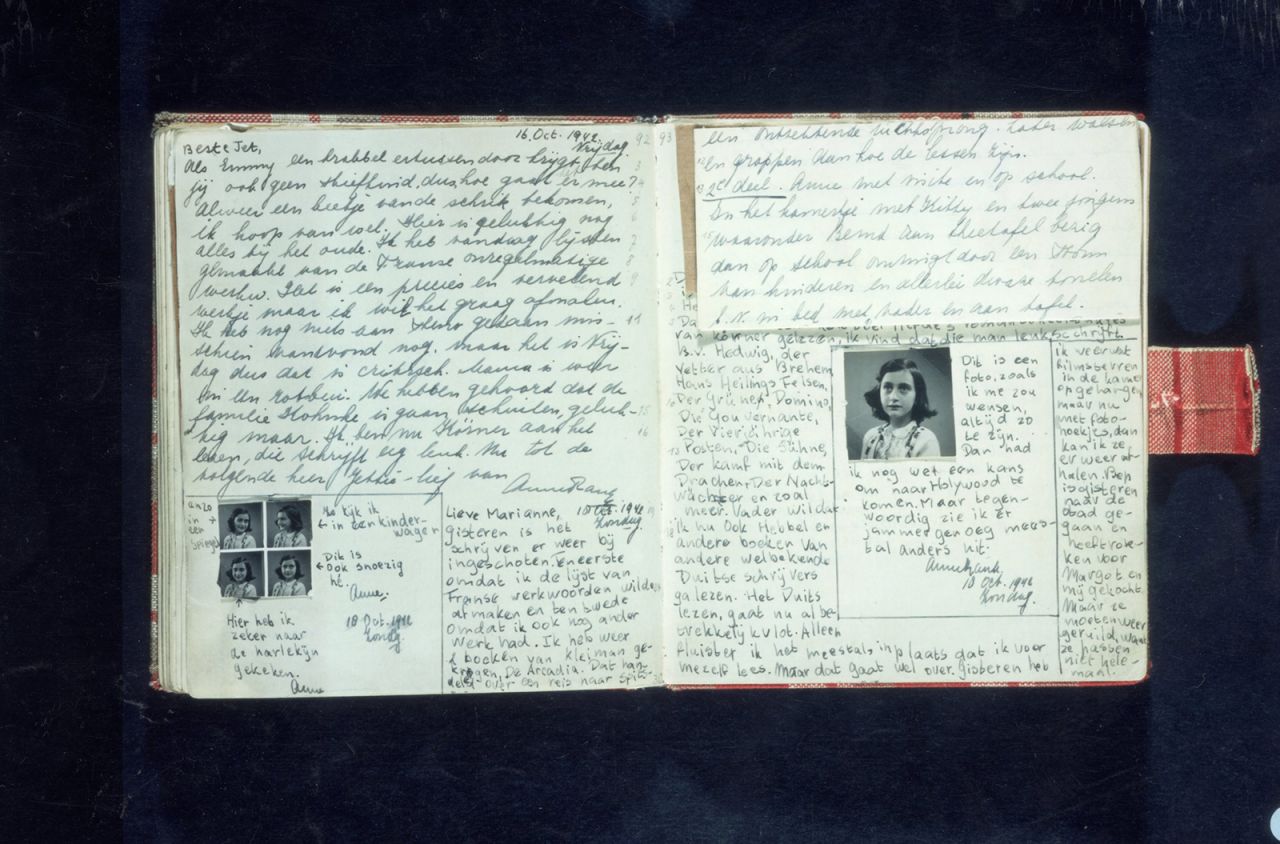 16 Oct. 1942
Vrijdag
92
Beste Jet,
Als Emmy een krabbel ertussen door krijgt, ben
jij ook geen stiefkind, dus hoe gaat er mee?
Alweer een beetje van de schrik bekomen,
ik hoop van wel. Hier is gelukkig nog
alles bij het oude. Ik heb vandaag lijsten
gemaakt van de Franse onregelmatige
werkw. Het is een precies en vervelend
werkje maar ik wil het graag afmaken.
Ik heb nog niets aan steno gedaan mis-
schien vanavond nog, maar het is Vrij-
dag dus dat is critisch. Mama is weer
in een rotbui. We hebben gehoord dat de
familie is gaan schuilen, geluk-
kig maar. Ik ben nu Körner aan het
lezen, die schrijft erg leuk. Nu tot de
volgende keer Jetje-lief van
Anne Frank
3
5
6
7
8
9
11
15
16
en zo
in
een
spiegel
Zo kijk ik
in een kinder-
wagen
Dit is
ook snoezig
hè.
Anne.
18 Oct. 1942
Zondag
Hier heb ik
zeker naar
de harlekijn
gekeken.
Anne
Lieve Marianne,
18 Oct. 1942
Zondag
gisteren is het
schrijven er weer bij
ingeschoten. Ten eerste
omdat ik de lijst van
Franse werkwoorden wilde
afmaken en ten twede
omdat ik ook nog ander
werk had. Ik heb weer
2 boeken van kleiman ge-
kregen, De Arcadia. Dat han-
deld over een reis naar Spits-
93
een ontzettende luchtsprong. Later walsen
en grappen dan hoe de lessen zijn.
2e deel. Anne met in en op school.
In het kamertje met Kitty en twee jongens
waaronder Bernd aan theetafel bezig
dan op school omringt door een stroom
van kinderen en allerlei diverse tonelen
b.v. in bed met vader en aan tafel.
van körner gelezen, ik vind dat die man leuk schrijft.
B.v. Hedwig, der
Vetter aus Brehem
Hans Heilings Felsen,
Der Grünen Domino,
Die Gouvernante,
Der Vierjährige
Posten, Die Sühne,
Der kamf mit dem
Drachen, Der Nacht-
wächter en zoal
meer. Vader wil dat
ik nu ook Hebbel en
andere boeken van
andere welbekende
Duitse schrijvers
ga lezen. Het Duits
lezen, gaat nu al be-
trekkelijk vlot. Alleen
fluister ik het meestal in plaats dat ik voor
mezelf lees. Maar dat gaat wel over. gisteren heb
Dit is een
foto, zoals
ik me zou
wensen,
altijd zo
te zijn.
Dan had
ik nog wel een kans
om naar Holywoud te
komen. Maar tegen-
woordig zie ik er
jammer genoeg mees-
tal anders uit.
Annefrank.
18 Oct. 1942
Zondag
ik veerust
filmsterren
in de kamer
opgehangen
maar nu
met foto-
hoekjes, dan
kan ik ze,
er weer af-
halen. Bep
is gisteren
naar de
stad ge-
gaan en
heeft rok-
ken voor
Margot en
mij gekocht.
Maar ze
moeten weer
geruild, want
ze passen
niet hele-
maal.